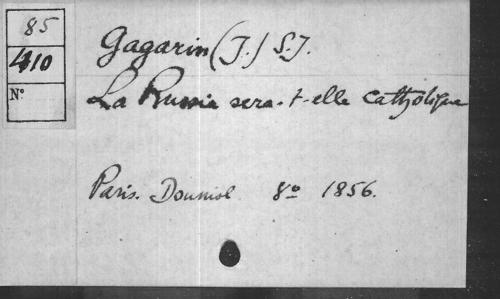 85
410
N°
Gagarin (J.) S.J.
La Russie sera-t-elle catholique
Paris. Douniol 8° 1856.